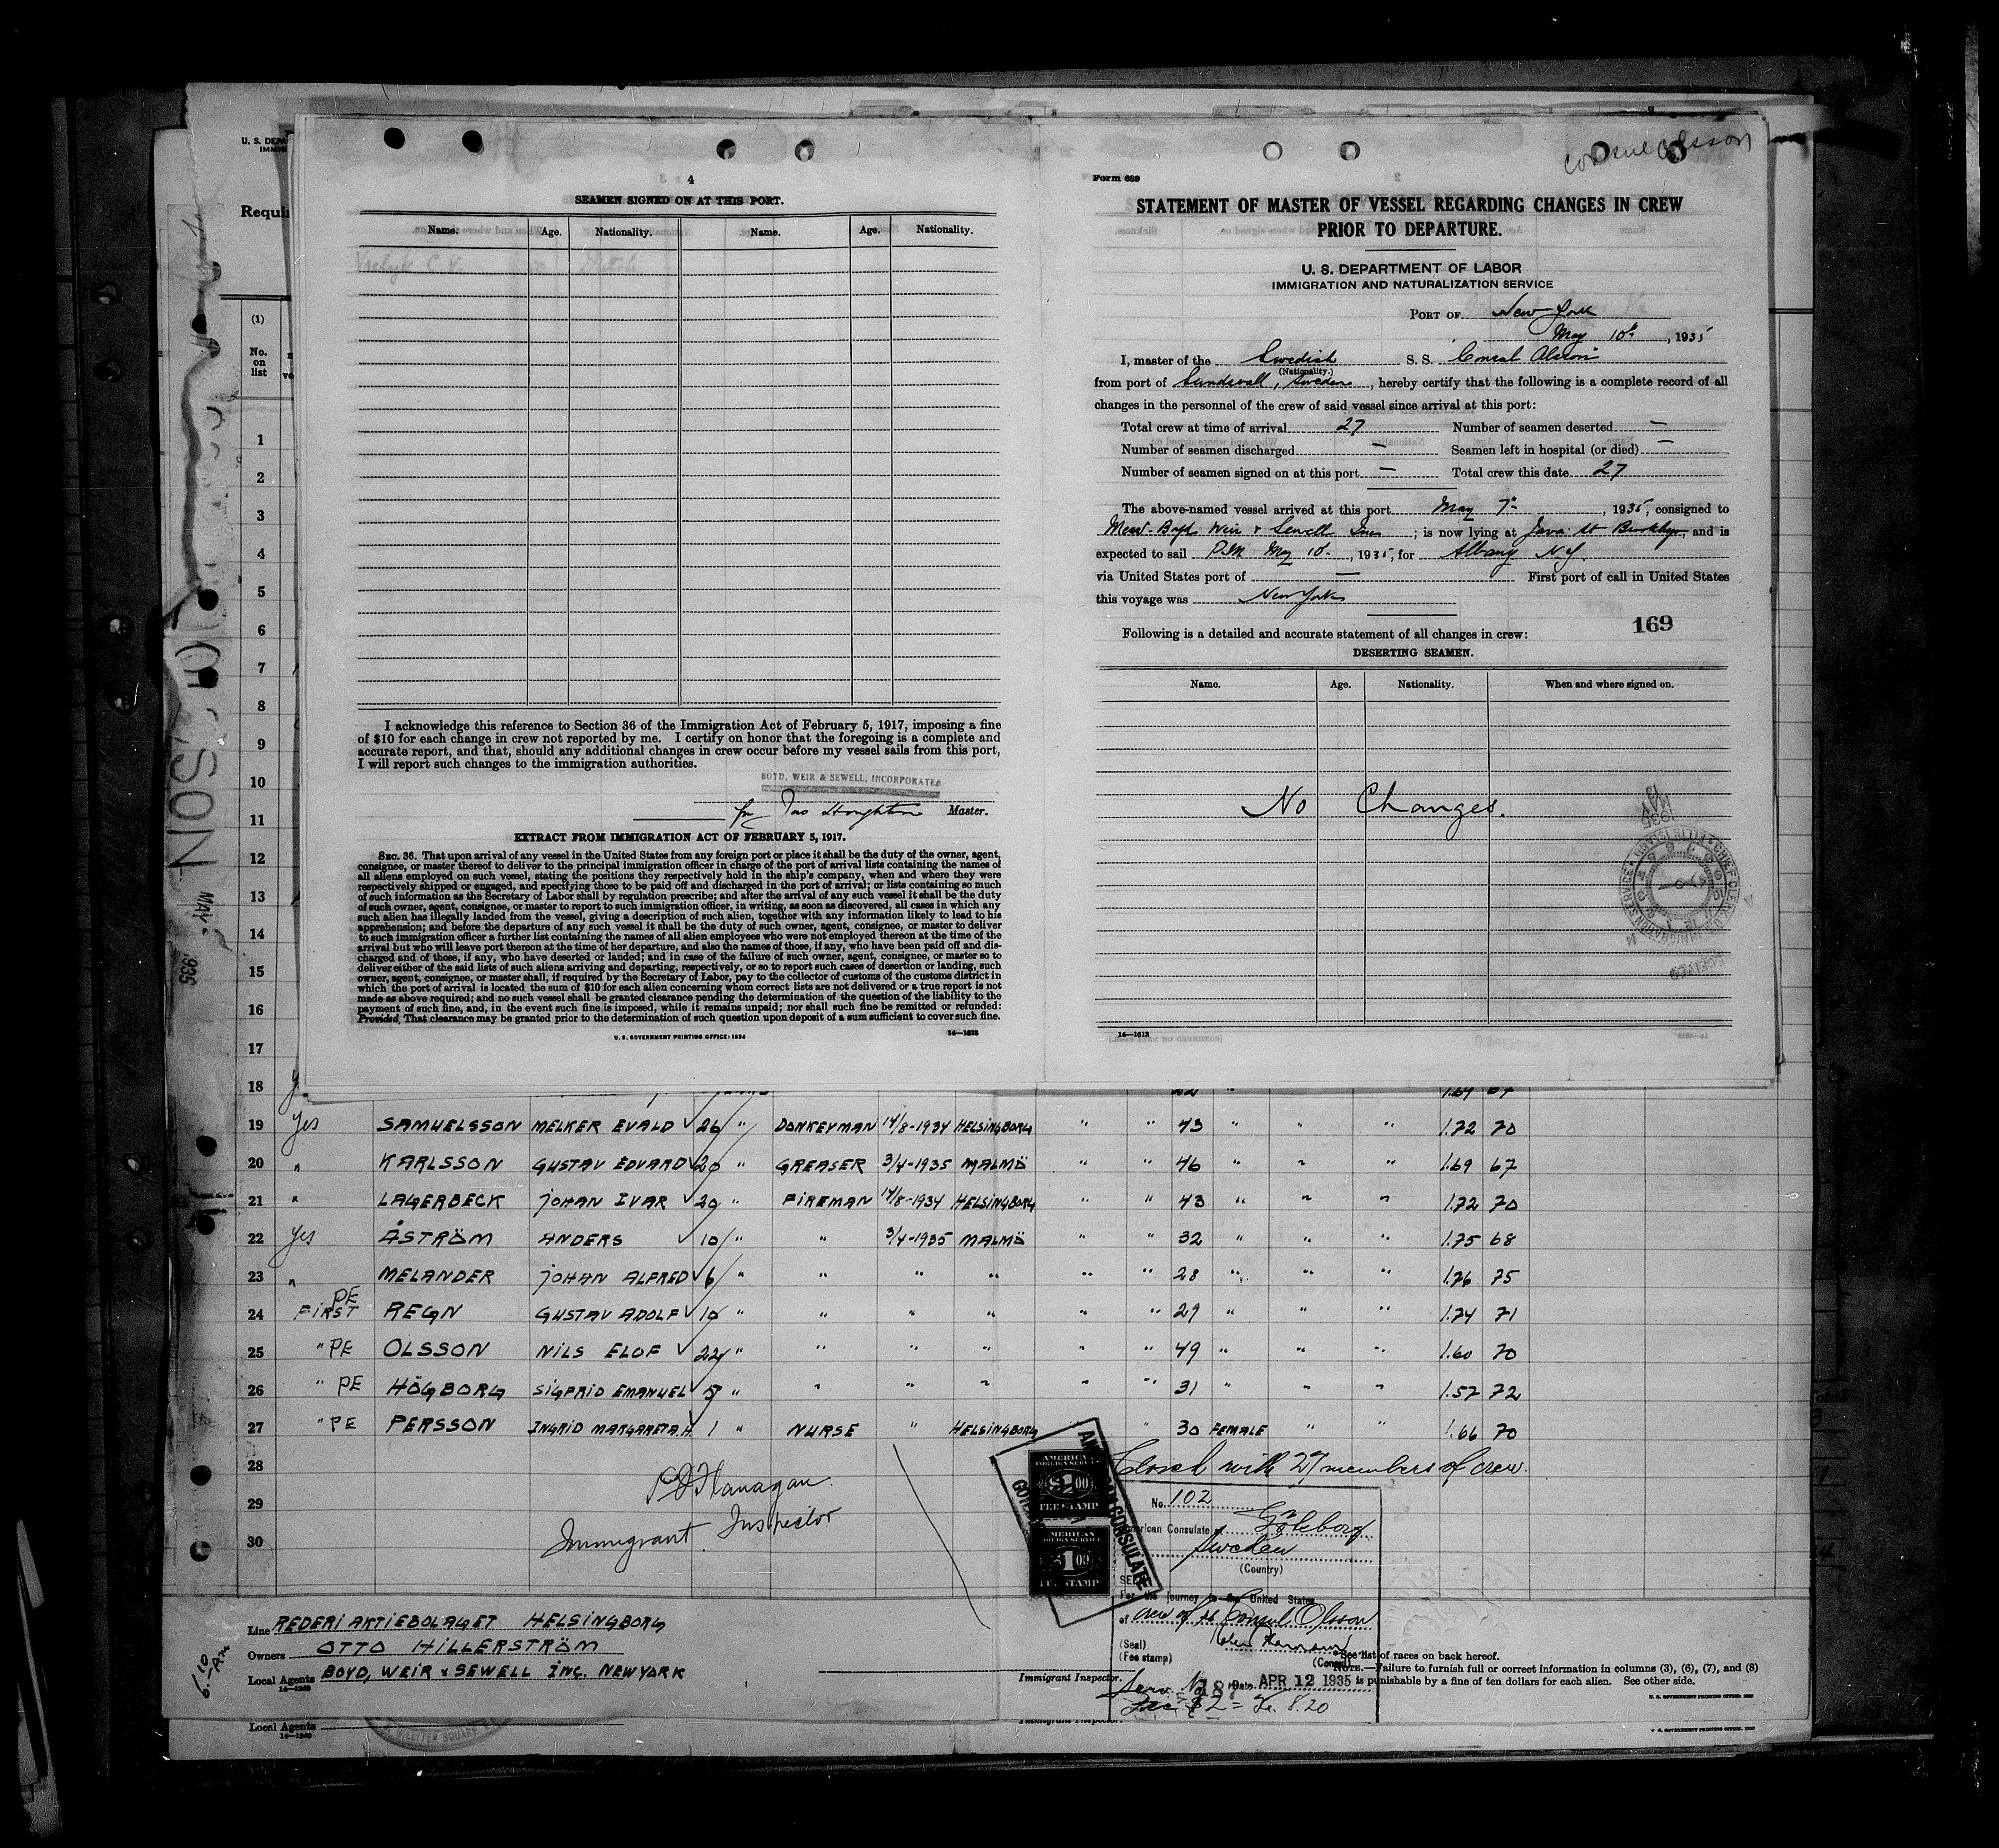 U. S. DEPA
IMMIG
Requi
(1)
No.
on
list
1
2
3
4
5
6
7
8
9
10
11
12
13
14
15
16
17
4
SEAMEN SIGNED ON AT THIS PORT.
Name. Age. Nationality. Name. Age. Nationality.
I acknowledge this reference to Section 36 of the Immigration Act of February 5, 1917, imposing a fine
of $10 for each change in crew not reported by me. I certify on honor that the foregoing is a complete and
accurate report, and that, should any additional changes in crew occur before my vessel sails from this port,
I will report such changes to the immigration authorities.
BOYD, WEIR & SEWELL, INCORPORATED
for Jas Houghton Master.
EXTRACT FROM IMMIGRATION ACT OF FEBRUARY 5, 1917.
SEC. 36. That upon arrival of any vessel in the United States from any foreign port or place it shall be the duty of the owner, agent,
consignee, or master thereof to deliver to the principal immigration officer in charge of the port of arrival lists containing the names of
all aliens employed on such vessel, stating the positions they respectively hold in the ship's company, when and where they were
respectively shipped or engaged, and specifying those to be paid off and discharged in the port of arrival; or lists containing so much
of such information as the Secretary of Labor shall by regulation prescribe; and after the arrival of any such vessel it shall be the duty
of such owner, agent, consignee, or master to report to such immigration officer, in writing, as soon as discovered, all cases in which any
such alien has illegally landed from the vessel, giving a description of such alien, together with any information likely to lead to his
apprehension; and before the departure of any such vessel it shall be the duty of such owner, agent, consignee, or master to deliver
to such immigration officer a further list containing the names of all alien employees who were not employed thereon at the time of the
arrival but who will leave port thereon at the time of her departure, and also the names of those, if any, who have been paid off and dis-
charged and of those, if any, who have deserted or landed; and in case of the failure of such owner, agent, consignee, or master so to
deliver either of the said lists of such aliens arriving and departing, respectively, or so to report such cases of desertion or landing, such
owner, agent, consignee, or master shall, if required by the Secretary of Labor, pay to the collector of customs of the customs district in
which the port of arrival is located the sum of $10 for each alien concerning whom correct lists are not delivered or a true report is not
made as above required; and no such vessel shall be granted clearance pending the determination of the question of the liability to the
payment of such fine, and, in the event such fine is imposed, while it remains unpaid; nor shall such fine be remitted or refunded:
Provided, That clearance may be granted prior to the determination of such question upon deposit of a sum sufficient to cover such fine.
U. S. GOVERNMENT PRINTING OFFICE: 1934 14—1613
Consul Olsson
Form 689
STATEMENT OF MASTER OF VESSEL REGARDING CHANGES IN CREW
PRIOR TO DEPARTURE.
U. S. DEPARTMENT OF LABOR
IMMIGRATION AND NATURALIZATION SERVICE
PORT OF New York
May 10th, 1935
I, master of the Swedish S. S. Consul Olsson
(Nationality.)
from port of Sundsvall, Sweden, hereby certify that the following is a complete record of all
changes in the personnel of the crew of said vessel since arrival at this port:
Total crew at time of arrival 27 Number of seamen deserted —
Number of seamen discharged — Seamen left in hospital (or died) —
Number of seamen signed on at this port — Total crew this date 27
The above-named vessel arrived at this port May 7th, 1935, consigned to
Messrs Boyd, Weir & Sewell Inc; is now lying at Java St Brooklyn, and is
expected to sail P.M. May 10th, 1935, for Albany N.Y.
via United States port of — First port of call in United States
this voyage was New York
169
Following is a detailed and accurate statement of all changes in crew:
DESERTING SEAMEN.
Name. Age. Nationality. When and where signed on.
No Changes.
14—1613
18
19 Yes SAMUELSSON MELKER EVALD 26 " DONKEYMAN 14/8-1934 HELSINGBORG " " 43 " " " 1.72 70
20 " KARLSSON GUSTAV EDVARD 20 " GREASER 3/4-1935 MALMÖ " " 46 " " " 1.69 67
21 " LAGERBECK JOHAN IVAR 20 " FIREMAN 14/8-1934 HELSINGBORG " " 43 " " " 1.72 70
22 Yes ÅSTRÖM ANDERS 10 " " 3/4-1935 MALMÖ " " 32 " " " 1.75 68
23 " MELANDER JOHAN ALFRED 6 " " " " " " 28 " " " 1.76 75
24 PE FIRST REGN GUSTAV ADOLF 10 " " " " " " 29 " " " 1.74 71
25 " PE OLSSON NILS ELOF 22 " " " " " " 49 " " " 1.60 70
26 " PE HÖGBORG SIGFRID EMANUEL 5 " " " " " " 31 " " " 1.57 72
27 " PE PERSSON INGRID MARGARETA H. 1 " NURSE " HELSINGBORG " 30 FEMALE " " 1.66 70
28
29
30
Closed with 27 members of crew.
Flanagan
Immigrant Inspector
AMERICAN CONSULATE
AMERICAN
FOREIGN SERVICE
$1.00
FEE STAMP
AMERICAN
FOREIGN SERVICE
$1.00
FEE STAMP
No. 102
American Consulate at Göteborg
Sweden
(Country)
For the journey to the United States
of crew of SS Consul Olsson
(Seal)
(Fee stamp)
(Consul)
Serv. No. 187 Date APR 12 1935
Fee $2 = Kr. 8.20
Line REDERIAKTIEBOLAGET HELSINGBORG
Owners OTTO HILLERSTRÖM
Local Agents BOYD, WEIR & SEWELL INC. NEW YORK
Immigrant Inspector.
See list of races on back hereof.
NOTE.—Failure to furnish full or correct information in columns (3), (6), (7), and (8)
is punishable by a fine of ten dollars for each alien. See other side.
Local Agents